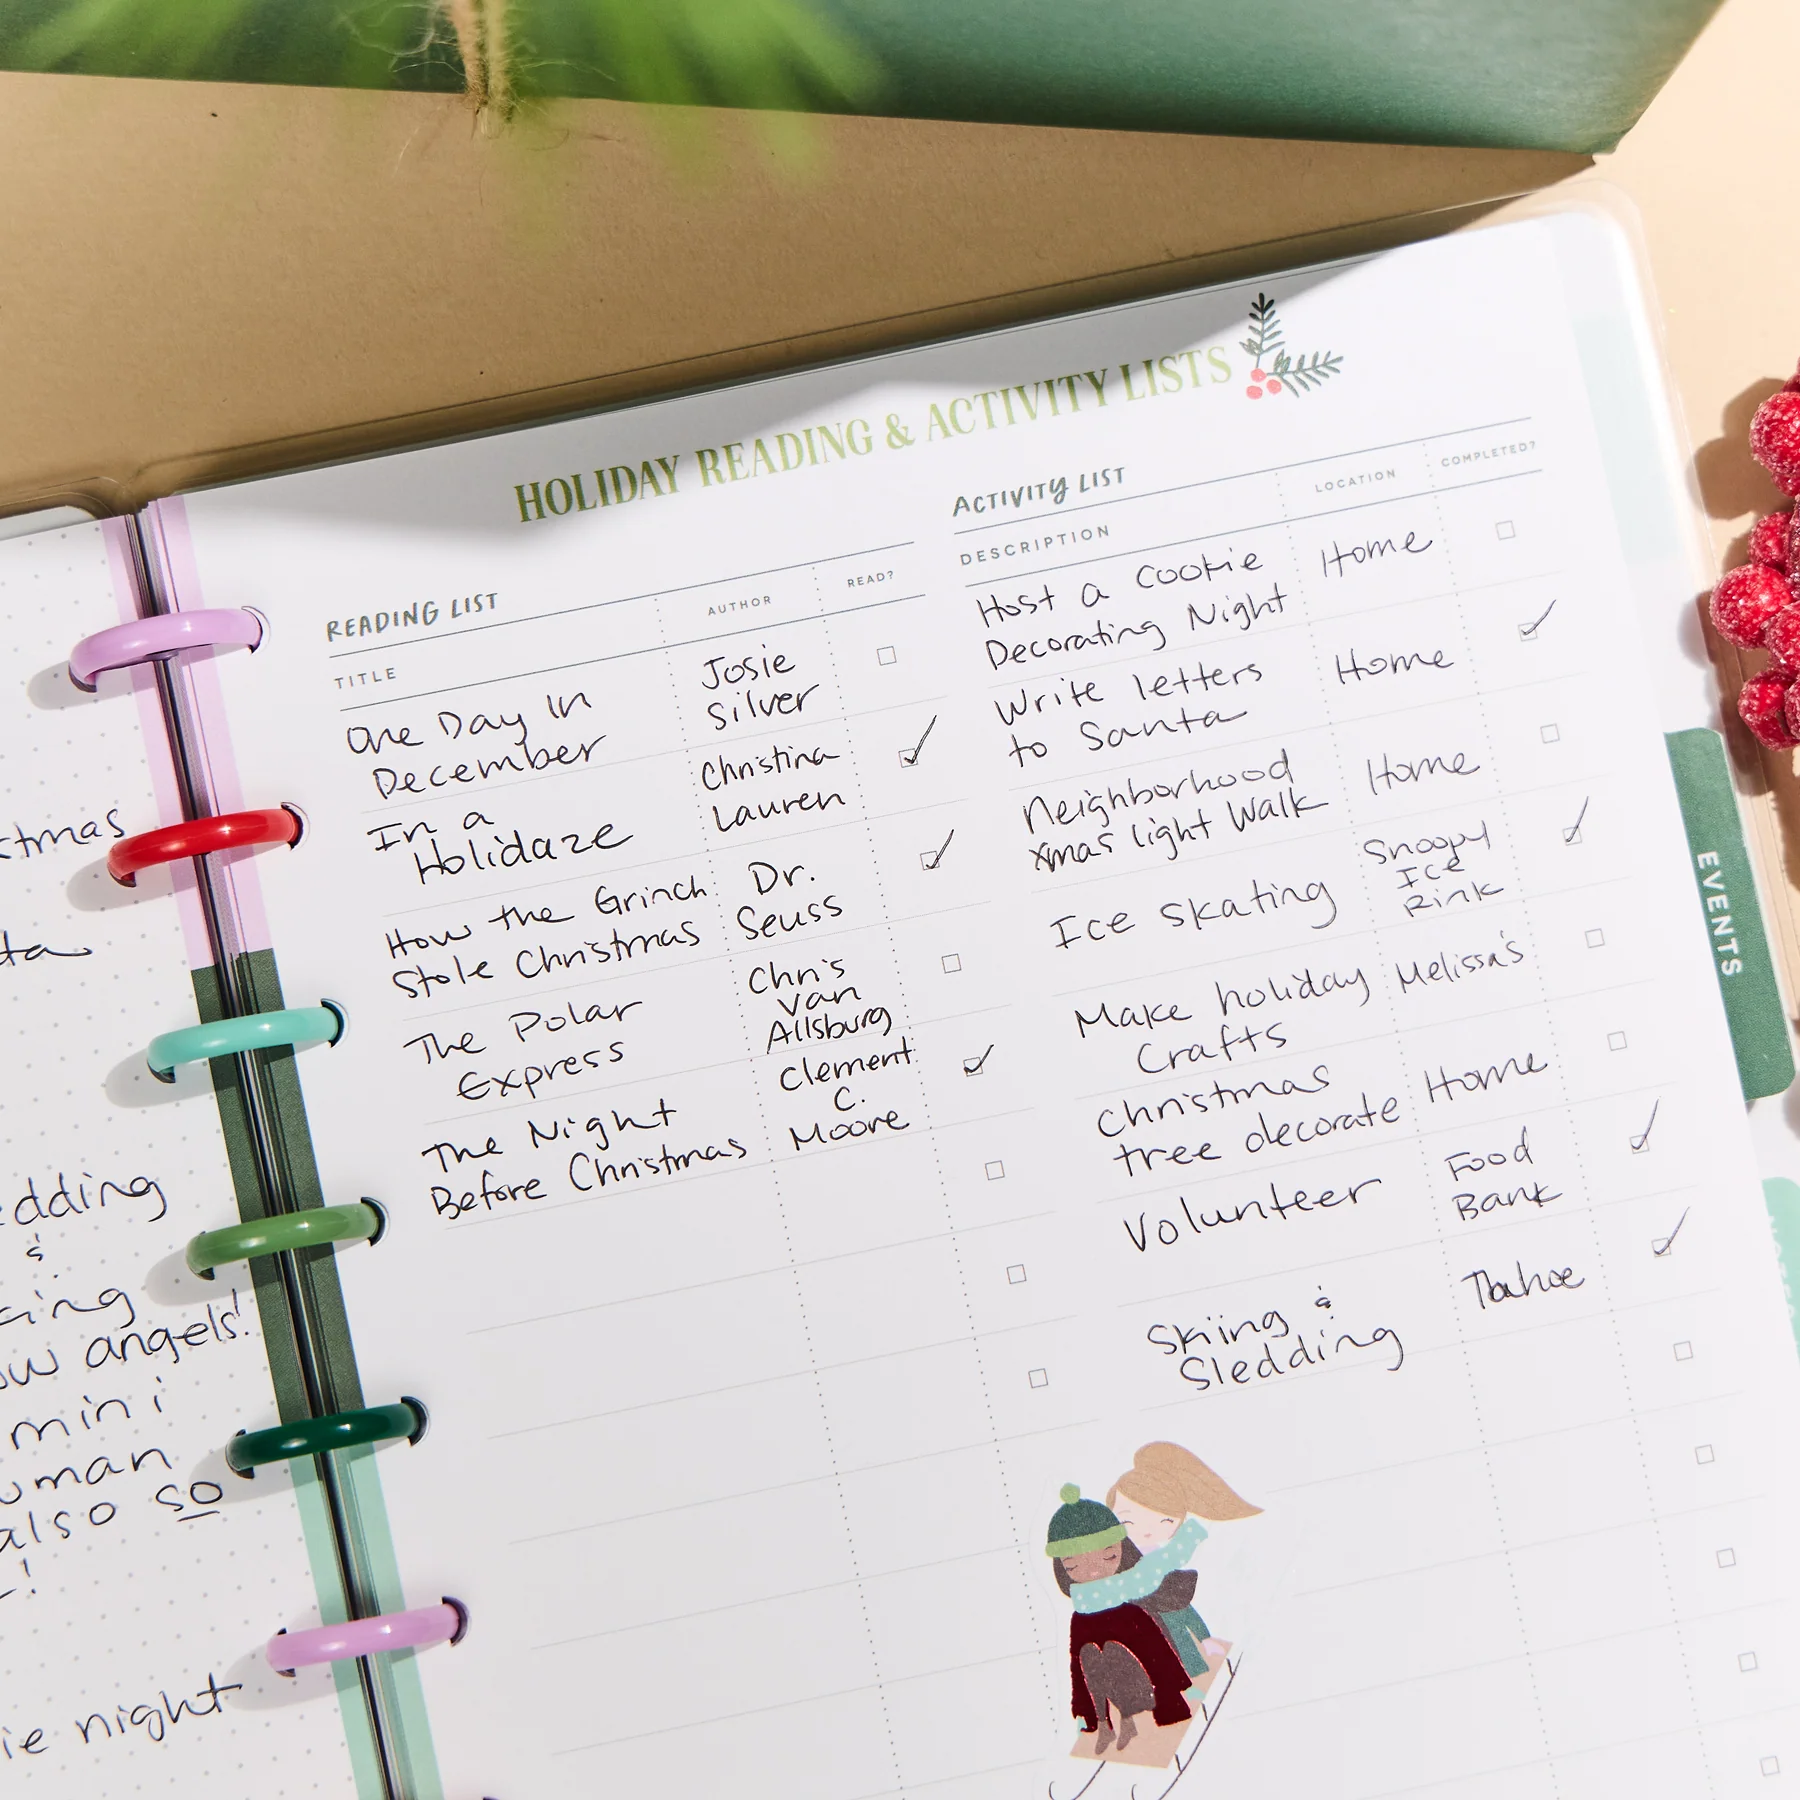 HOLIDAY READING & ACTIVITY LISTS
READING LIST
TITLE
AUTHOR
READ?
One Day In
December
Josie
Silver
In a
Holidaze
Christina
Lauren
How the Grinch
Stole Christmas
Dr.
Seuss
The Polar
Express
Chris
Van
Allsburg
The Night
Before Christmas
Clement
C.
Moore
ACTIVITY LIST
DESCRIPTION
LOCATION
COMPLETED?
Host a Cookie
Decorating Night
Home
Write letters
to Santa
Home
Neighborhood
Xmas light Walk
Home
Ice skating
Snoopy
Ice
Rink
Make holiday
Crafts
Melissa's
Christmas
tree decorate
Home
Volunteer
Food
Bank
Skiing &
Sledding
Tahoe
EVENTS
&
angels!
mini
also so
night